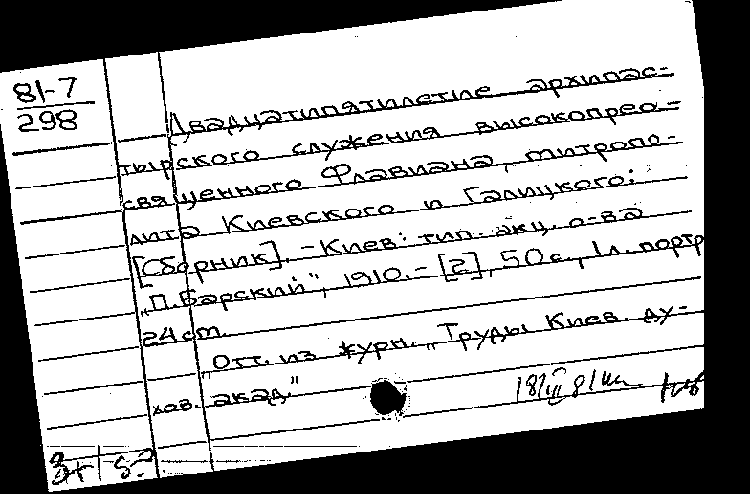 81-7
298
Двадцатипятилетие архипас-
тырского служения высокопрео-
священного Флавиана, митропо-
лита Киевского и Галицкого:
[Сборник]. – Киев: тип. акц. о-ва
„П. Барский", 1910. – [2], 50 с., 1 л. портр
24 cm.
„Отт. из журн. „Труды Киев. ду-
хов. акад."